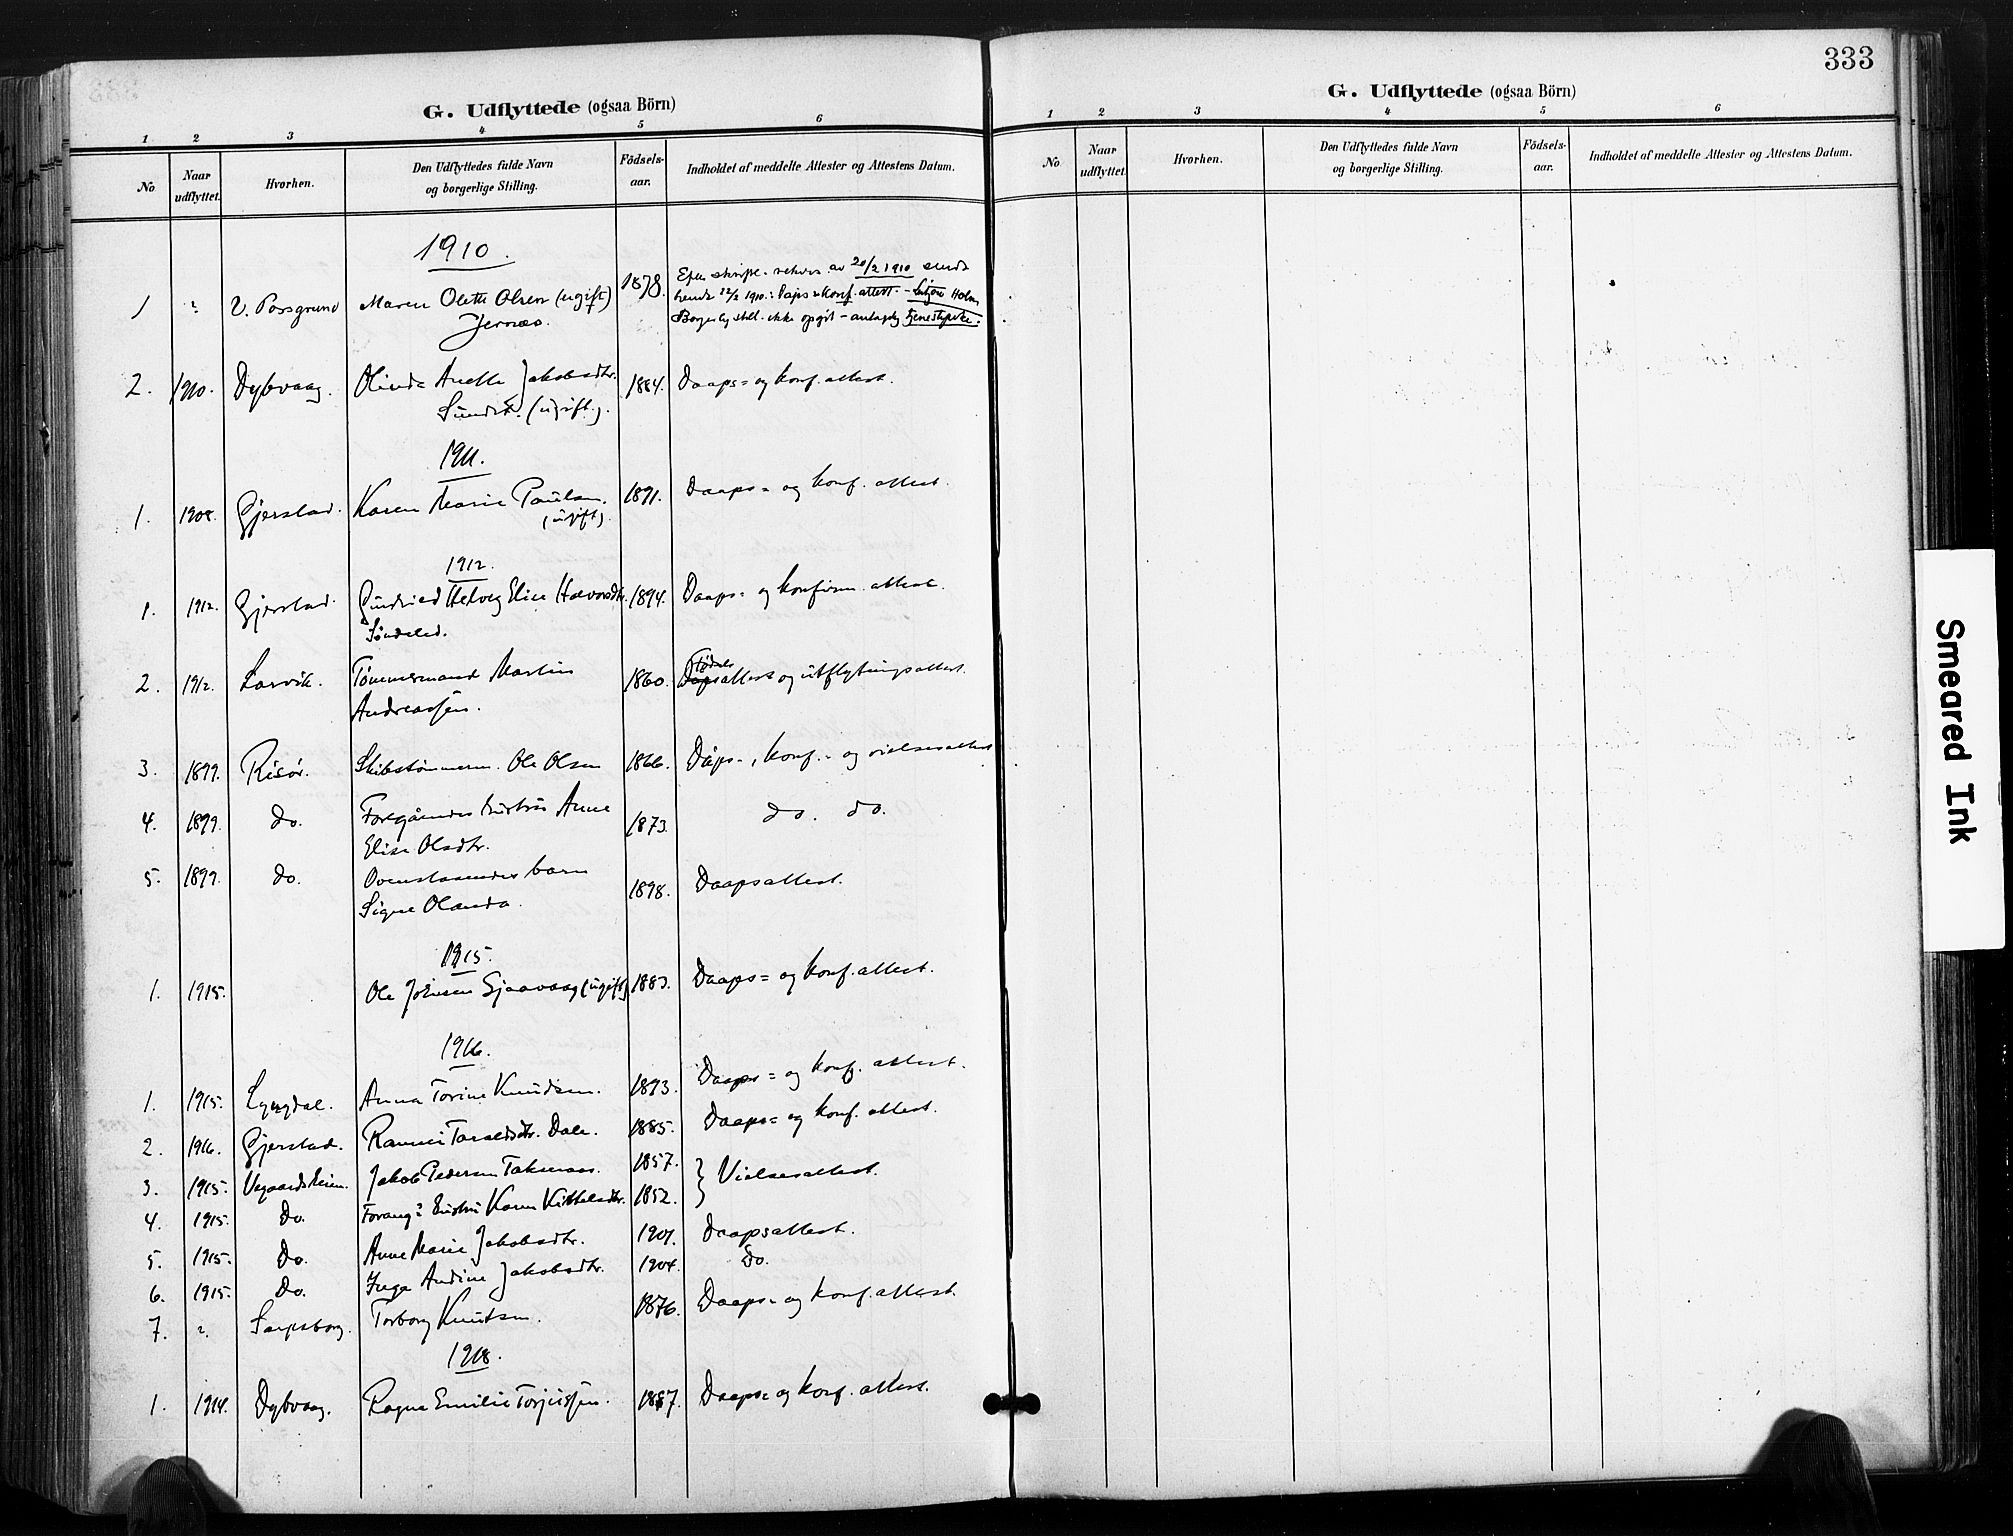 333
G. Udflyttede (ogsaa Börn)
1 2 3 4 5 6
No
Naar udflyttet.
Hvorhen.
Den Udflyttedes fulde Navn og borgerlige Stilling.
Födsels-aar.
Indholdet af meddelte Attester og Attestens Datum.
1910.
1 ? V. Porsgrund Maren Olette Olsen (ugift) 1878. 20/2 1910
Jernæs. 22/2 1910: Daps & Konf. attest.
ikke opgit
2. 1910. Dybvaag. Olinda Anette Jakobsdtr. 1884. Daaps= og konf. attest.
Sundet. (ugift).
1911.
1. 1908. Gjerstad. Karen Marie Paulsen. 1891. Daaps= og konf. attest.
(ugift).
1912.
1. 1912. Gjerstad. Helveg Elise Halvorsdtr. 1894. Daaps= og konfirm. attest.
Söndeled.
2. 1912. Larvik. Tömmermand Martin 1860. Födselsattest og utflytningsattest.
Andreassen.
3. 1899. Risör. Skibstömmerm. Ole Olsen 1866. Dåps-, konf.- og vielsesattest
4. 1899. do. Foregåendes hustru Anne 1873. do. do.
Elise Olsdtr.
5. 1899. do. Ovenstaaendes barn 1898. Daapsattest.
Signe Olanda.
1915.
1. 1915. Ole Johnsen Sjaavaag (ugift) 1883. Daaps= og konf. attest.
1916.
1. 1915. Lyngdal. Anna Torine Knudsen. 1893. Daaps= og konf. attest.
2. 1916. Gjerstad. Taraldsdtr. Dale. 1885. Daaps= og konf. attest.
3. 1915. Vegaardsheien. Jakob Pedersen 1857. } Vielsesattest.
4. 1915. Do. Forang.s hustru Karen Kittelsdtr. 1852.
5. 1915. Do. Anne Marie Jakobsdtr. 1901. Daapsattest.
6. 1915. Do. Inga Andine Jakobsdtr. 1904. Do.
7. ?. Sarpsborg. Torborg Knutsen. 1876. Daaps= og konf. attest.
1918.
1. 1914. Dybvaag. Ragna Emilie Torjussen. 1887. Daaps= og konf. attest.
G. Udflyttede (ogsaa Börn)
1 2 3 4 5 6
No
Naar udflyttet.
Hvorhen.
Den Udflyttedes fulde Navn og borgerlige Stilling.
Födsels-aar.
Indholdet af meddelte Attester og Attestens Datum.
Smeared Ink